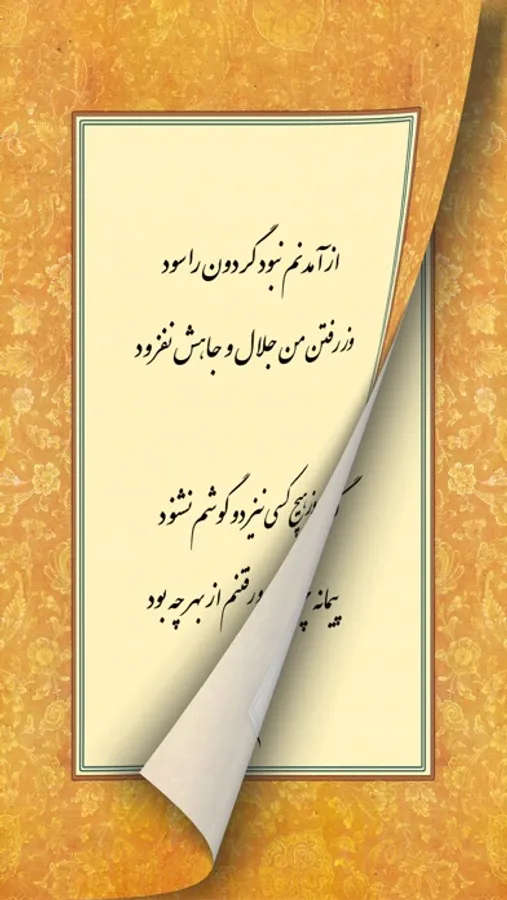 از آمدنم نبود گردون را سود
وز رفتن من جلال و جاهش نفزود
وز هیچ کسی نیز دو گوشم نشنود
پیمانه رفتنم از بهر چه بود